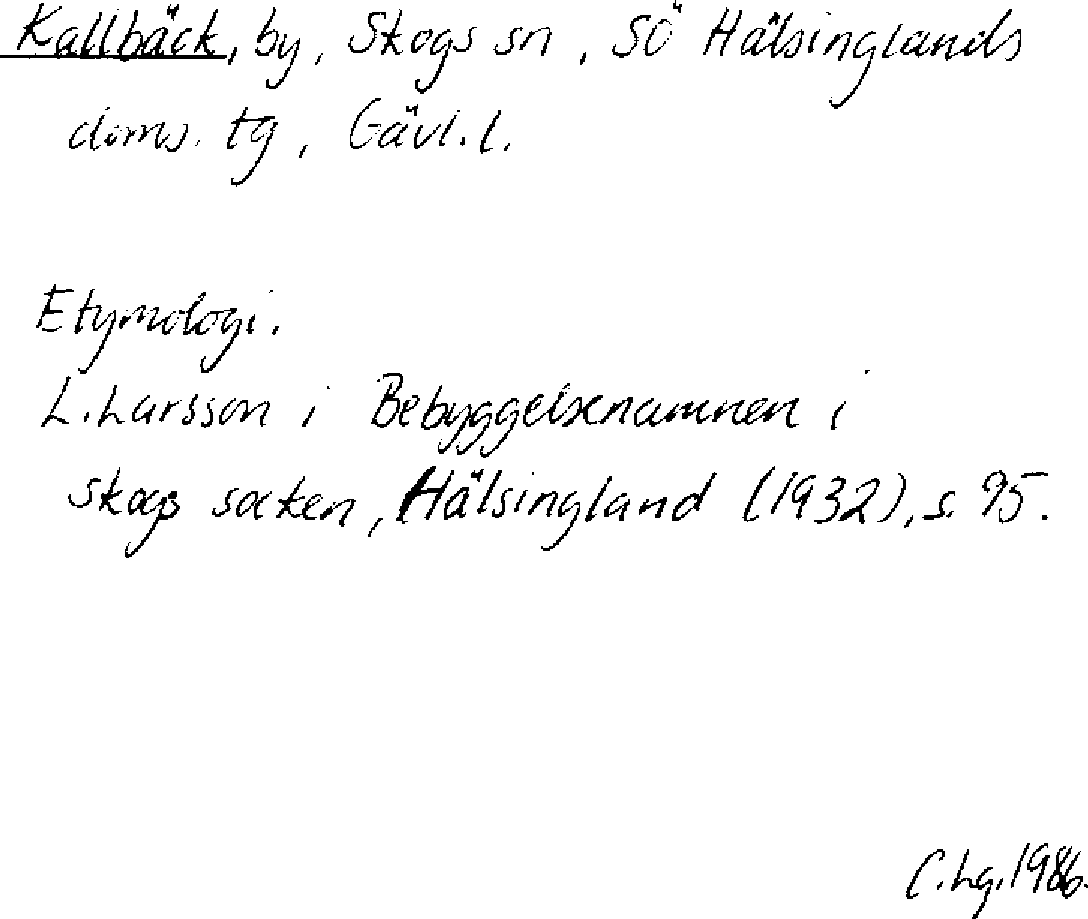 Kallbäck, by, Skogs sn, SÖ Hälsinglands
doms. tg, Gävl. l.
Etymologi.
L. Larsson i Bebyggelsenamnen i
Skogs socken, Hälsingland (1932), s. 95.
C. Lg. 1986.